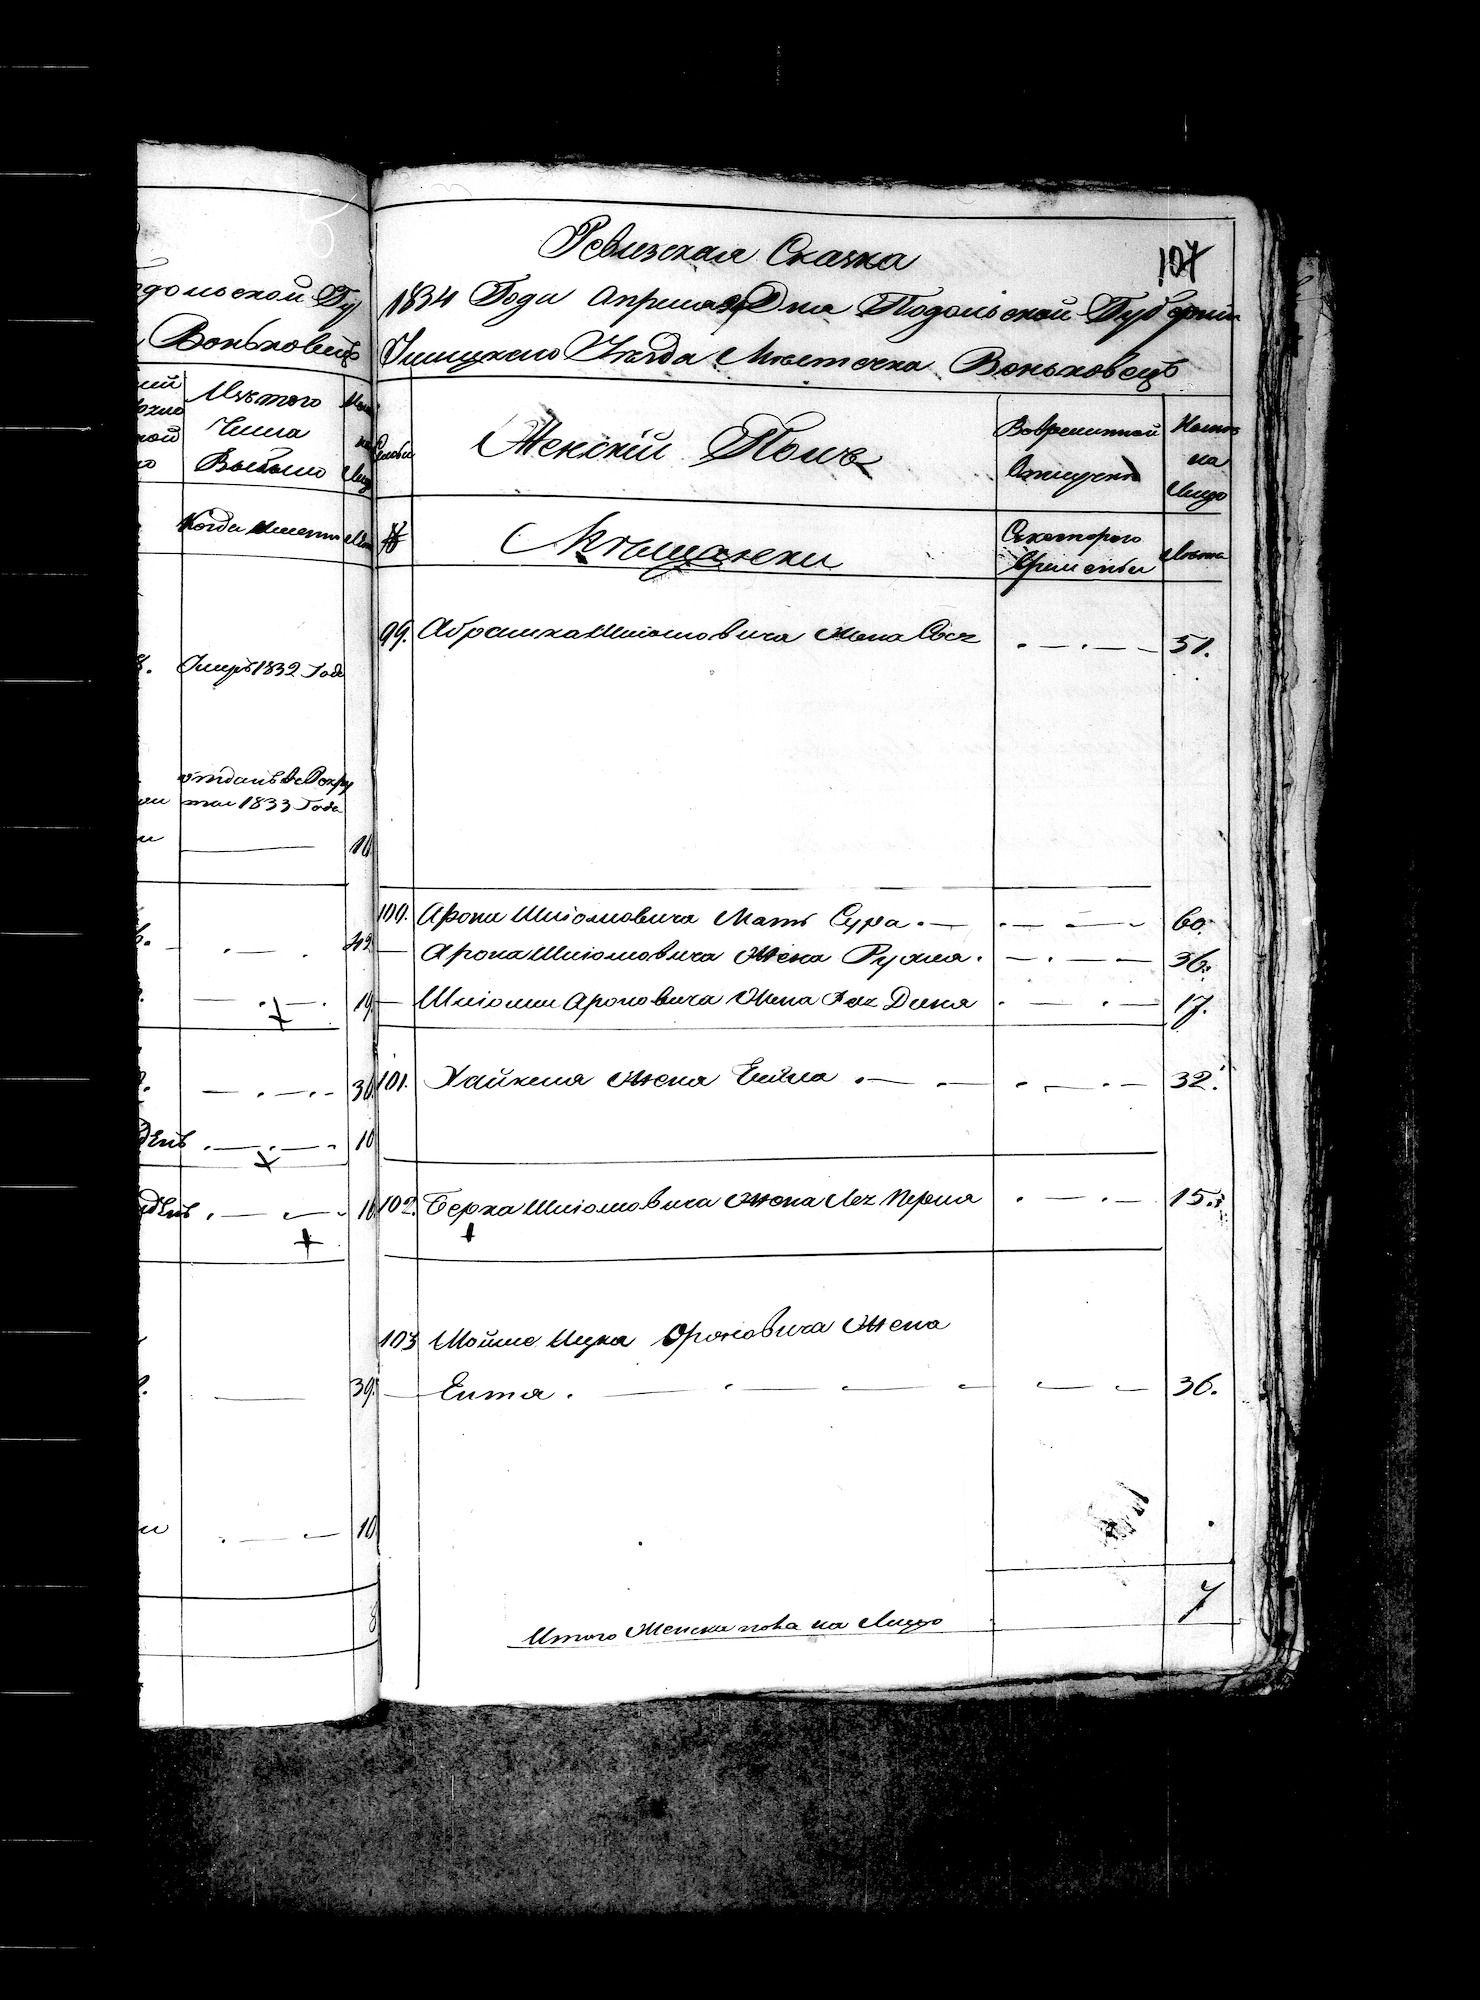 дольской Гу
Воньковецъ
Изъ того
Числа
Выбыло
Когда именно
Умеръ 1832 Года
отданъ в Рекру
ты 1833 Года
10
42
19
30
10
10
39.
10
8
107
Ревизская Сказка
1834 Года Апреля Дня Подольской Губернии
Ушицкаго Уезда Местечка Воньковецъ
Семьи
Женскій Полъ
Вовременной
Отлучке
Ныне
на
Лицо
№
Мещански
Скоторого
Времени
Лета
99. Абрамка Шліомовича Жена Сося 51.
100. Арона Шліомовича Мать Сура 60.
Арона Шліомовича Жена Рухля 36.
Шліоми Ароновича Жена Хая Диня 17.
101. Хаикеля Жена 32.
102. Берка Шліомовича Жена Лея Перля 15.
103 Мойше Ицка Ароновича Жена
Ента 36.
Итого Женска пола на Лицо 7